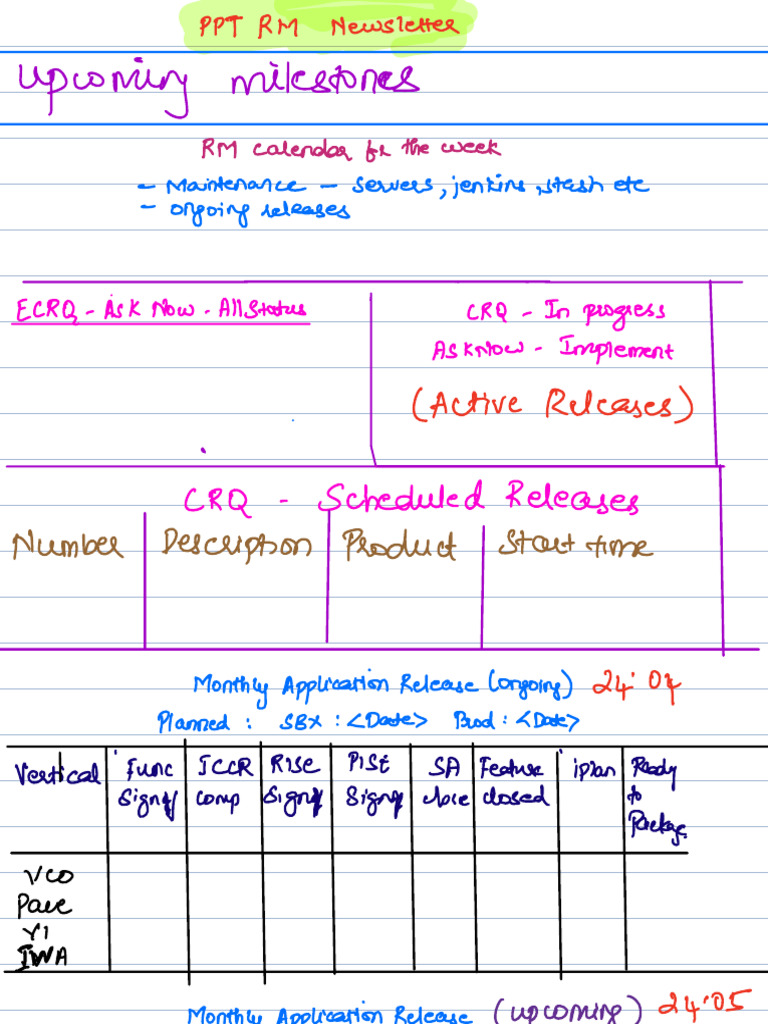 PPT RM Newsletter
Upcoming milestones
RM calendar for the week
- Maintenance - servers, jenkins, stash etc
- ongoing releases
ECRQ - Ask Now - All Status
CRQ - In progress
Ask Now - Implement
(Active Releases)
CRQ - Scheduled Releases
Number Description Product Start time
Monthly Application Release (ongoing) 24.04
Planned : SBX : <Date> Prod : <Date>
Vertical Func ICCR RISE PISE SA Feature iplan Ready
Signff comp Signff Signff close closed to
Package
VCO
Pave
YI
IWA
Monthly Application Release (upcoming) 24.05